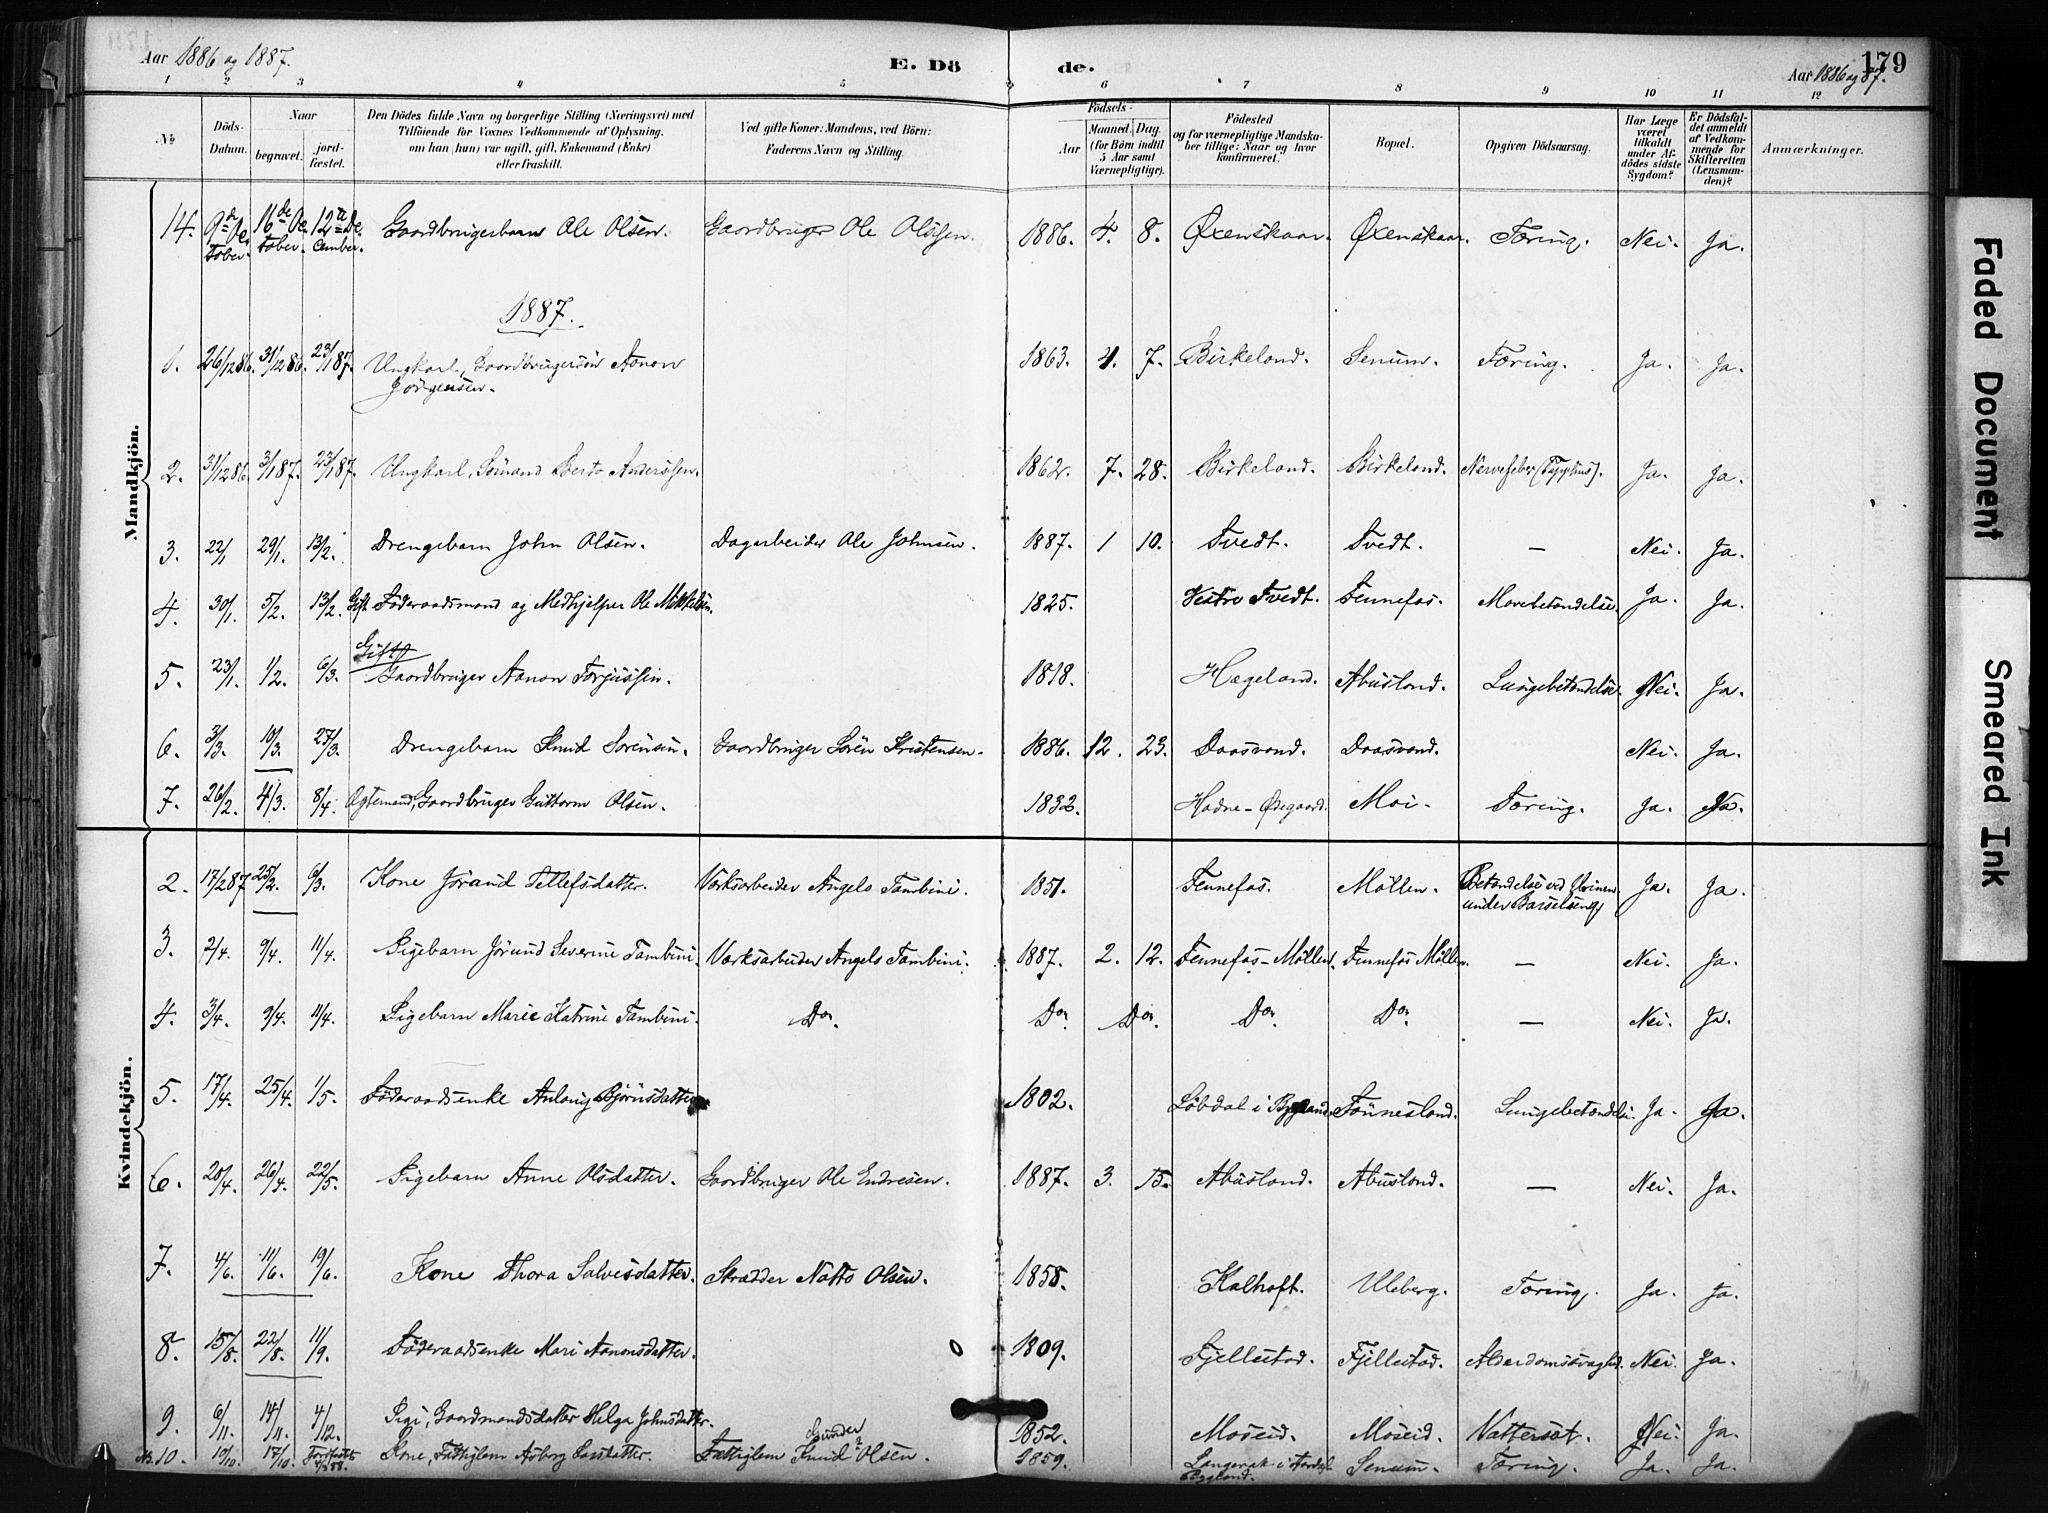 Aar 1886 og 1887.
E. Dö
de.
179
Aar 1886 og 87.
1 2 3 4 5 6 7 8 9 10 11 12
№
Döds-Datum.
Naar
begravet.
jord-fæstet.
Den Dödes fulde Navn og borgerlige Stilling (Næringsvei) med
Tilföiende for Voxnes Vedkommende af Oplysning,
om han (hun) var ugift, gift, Enkemand (Enke)
eller fraskilt.
Ved gifte Koner: Mandens, ved Börn:
Faderens Navn og Stilling.
Födsels-
Aar
Maaned. Dag.
(for Börn indtil
5 Aar samt
Værnepligtige).
Födested
og for værnepligtige Mandska-
ber tillige: Naar og hvor
konfirmeret.
Bopæl.
Opgiven Dödsaarsag.
Har Læge
været
tilkaldt
under Af-
dödes sidste
Sygdom?
Er Dödsfal-
det anmeldt
af Vedkom-
mende for
Skifteretten
(Lensman-
den)?
Anmærkninger.
Mandkjön.
14. 9de October. 16de October. 12te December. Gaardbrugerbarn Ole Olsen. Gaardbruger Ole Olssen. 1886. 4. 8. Øxenskaar. Øxenskaar. Tæring. Nei. Ja.
1887.
1. 26/12 86. 31/12 86. 23/1 87. Ungkarl, Gaardbrugersön Aanon Jörgensen. 1863. 4. 7. Birkeland. Senum. Tæring. Ja. Ja.
2. 31/12 86. 3/1 87. 23/1 87. Ungkarl, Sömand Berto Anderssen. 1862. 7. 28. Birkeland. Birkeland. Nervefeber (Typhus). Ja. Ja.
3. 22/1 29/1. 13/2. Drengebarn John Olsen. Dagarbeider Ole Johnsen. 1887. 1 10. Tvedt. Tvedt. — Nei. Ja.
4. 30/1. 5/2. 13/2. Gift Föderaadsmand og Medhjelper Ole Mikkelsen. 1825. Vestre Tvedt. Fennefos. Mavebetændelse. Ja. Ja.
5. 23/1. 1/2. 6/3. Gift Gaardbruger Aanon Torjussen. 1818. Hægeland. Abusland. Lungebetændelse. Nei. Ja.
6. 3/3. 10/3. 27/3. Drengebarn Knud Sörensen. Gaardbruger Sören Kristensen. 1886. 12. 23. Daasvand. Daasvand. Nei. Ja.
7. 26/2. 4/3. 8/4. Ægtemand, Gaardbruger Guttorm Olsen. 1832. Hodne-Øxegaard. Moi. Tæring. Ja. Ja.
Kvindekjön.
2. 17/2 87 25/2. 6/3. Kone Jörand Tellefsdatter. Værksarbeider Angelo Tambini. 1851. Fennefos. Möllen. Betændelse ved Urinen under Barselseng. Ja. Ja.
3. 2/4. 9/4. 11/4. Pigebarn Jörund Severine Tambini. Værksarbeider Angelo Tambini. 1887. 2. 12. Fennefos-Möllen. Fennefos Möllen. — Nei. Ja.
4. 3/4. 9/4. 11/4. Pigebarn Marie Katrine Tambini. Do. Do. Do. Do. Do. — Nei. Ja.
5. 17/4. 25/4. 1/5. Föderaadsenke Anlaug Björnsdatter 1802. Löbdal i Bygland Tönnesland. Lungebetændelse. Ja. Ja.
6. 20/4. 26/4. 22/5. Pigebarn Anne Olsdatter. Gaardbruger Ole Endresen. 1887. 3. 15. Abusland. Abusland. — Nei. Ja.
7. 4/6. 11/6. 19/6. Kone Thora Salvesdatter. Skrædder Notto Olsen. 1858. Kalhoft. Uleberg. Tæring. Ja. Ja.
8. 15/8. 22/8. 11/9. Föderaadsenke Mari Aanonsdatter. 1809. Fjellestad. Fjellestad. Alderdomssvaghed. Nei. Ja.
9. 6/11. 14/11. 4/12. Pige, Gaardmandsdatter Helga Johnsdatter. 1852. Moseid. Moseid. Vattersot. Nei. Ja.
No. 10. 10/10. 17/10. Kone, Fattiglem Aasborg Fattiglem Knud Gunder Olsen. 1859. Langerak i Bygland. Senum. Tæring. Ja. Ja.
Faded Document
Smeared Ink